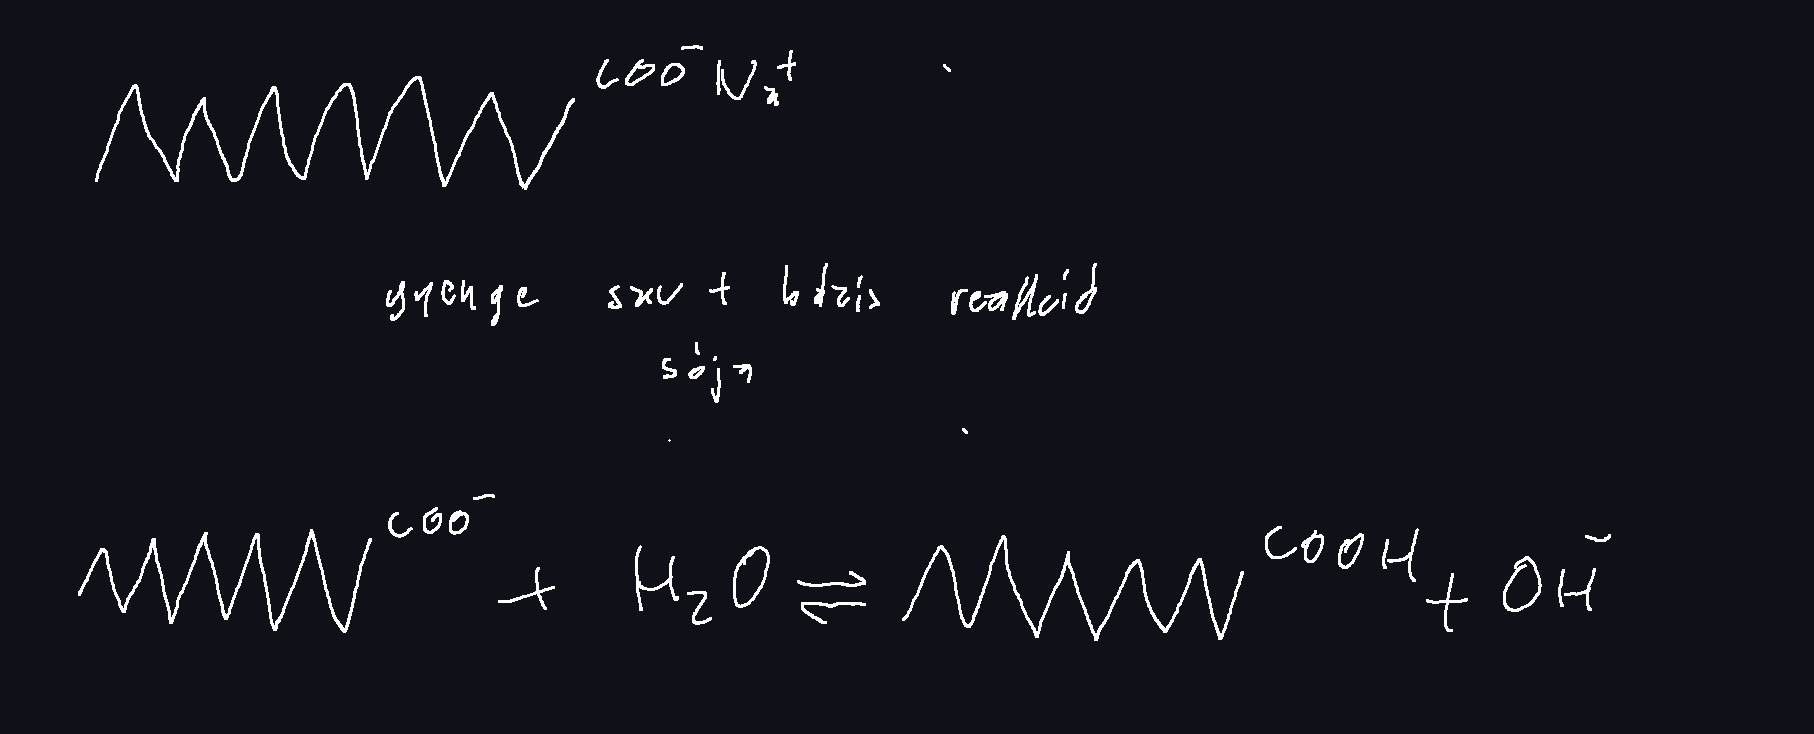 COO⁻ Na⁺
gyenge sav + bázis reakció
sója
COO⁻ + H₂O ⇌ COOH + OH⁻